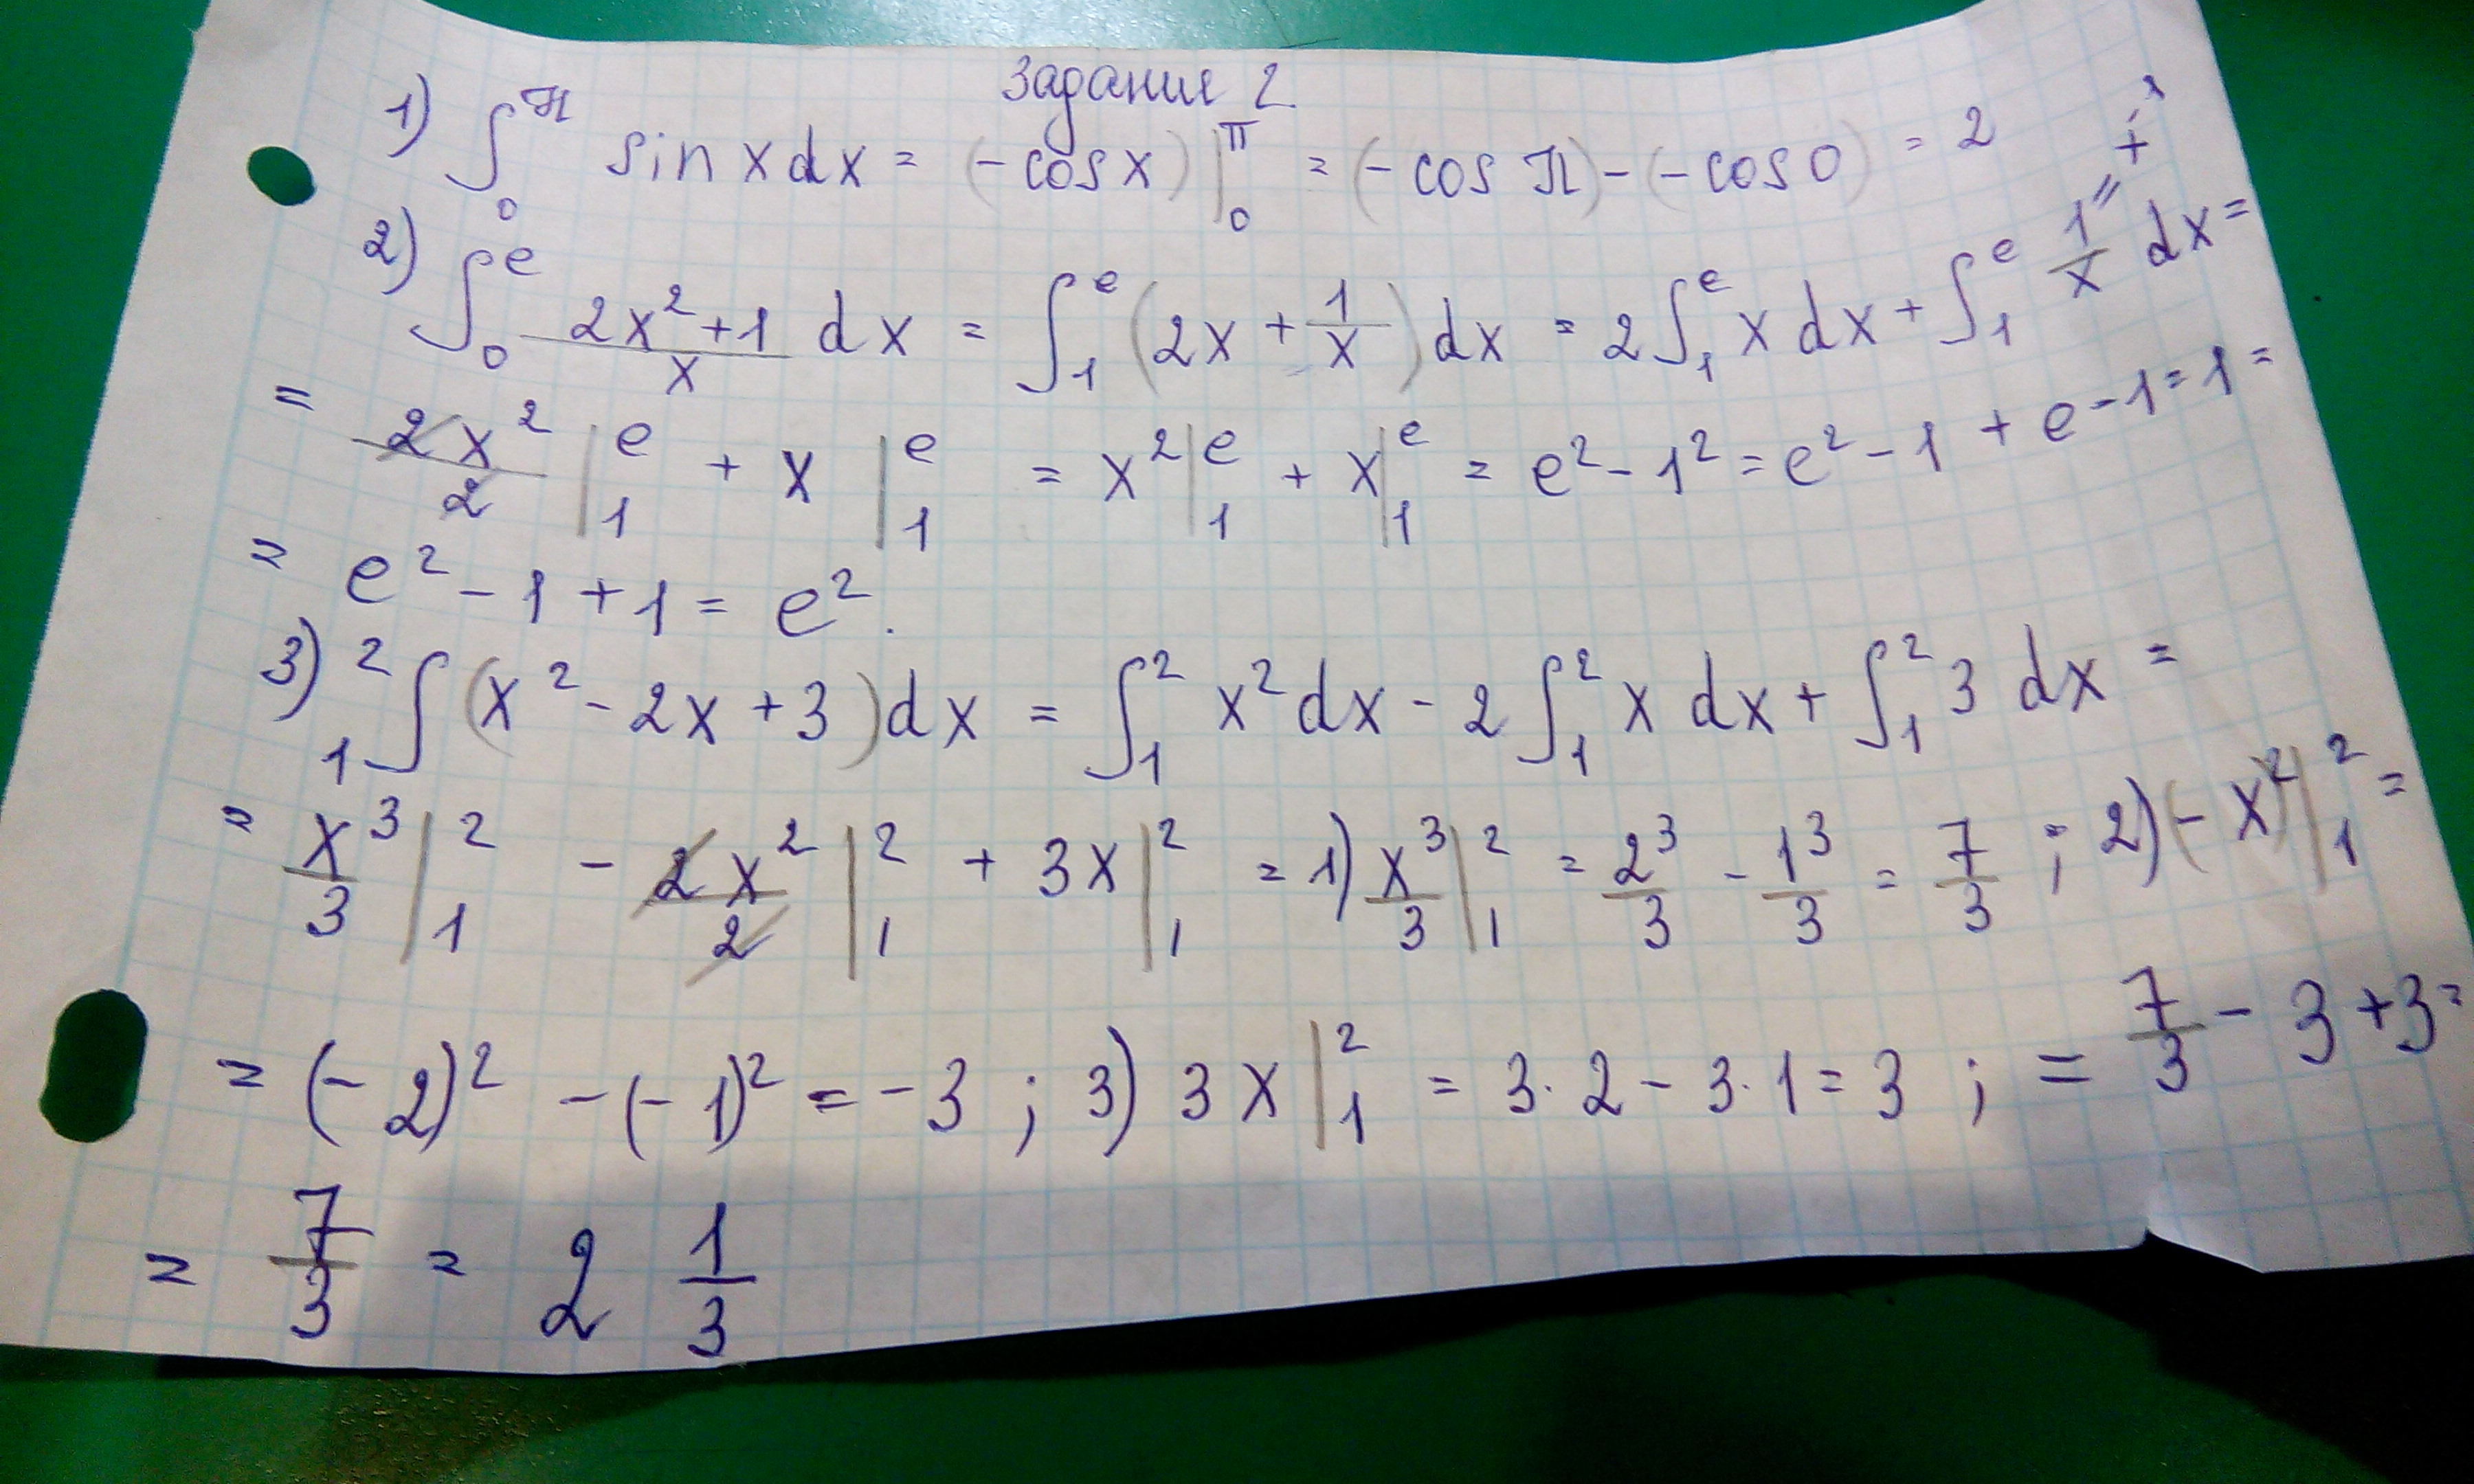 Задание 2
1) ∫₀^π sin x dx = (-cos x) |₀^π = (-cos π) - (-cos 0) = 2
2) ∫₀^e (2x² + 1)/x dx = ∫₁^e (2x + 1/x) dx = 2∫₁^e x dx + ∫₁^e 1/x dx =
= 2x²/2 |₁^e + x |₁^e = x² |₁^e + x |₁^e = e² - 1² = e² - 1 + e - 1 = 1 =
= e² - 1 + 1 = e².
3) ₁²∫ (x² - 2x + 3) dx = ∫₁² x² dx - 2∫₁² x dx + ∫₁² 3 dx =
= x³/3 |₁² - 2x²/2 |₁² + 3x |₁² = 1) x³/3 |₁² = 2³/3 - 1³/3 = 7/3 ; 2) (-x²) |₁² =
= (-2)² - (-1)² = -3 ; 3) 3x |₁² = 3·2 - 3·1 = 3 ; = 7/3 - 3 + 3 =
= 7/3 = 2 1/3